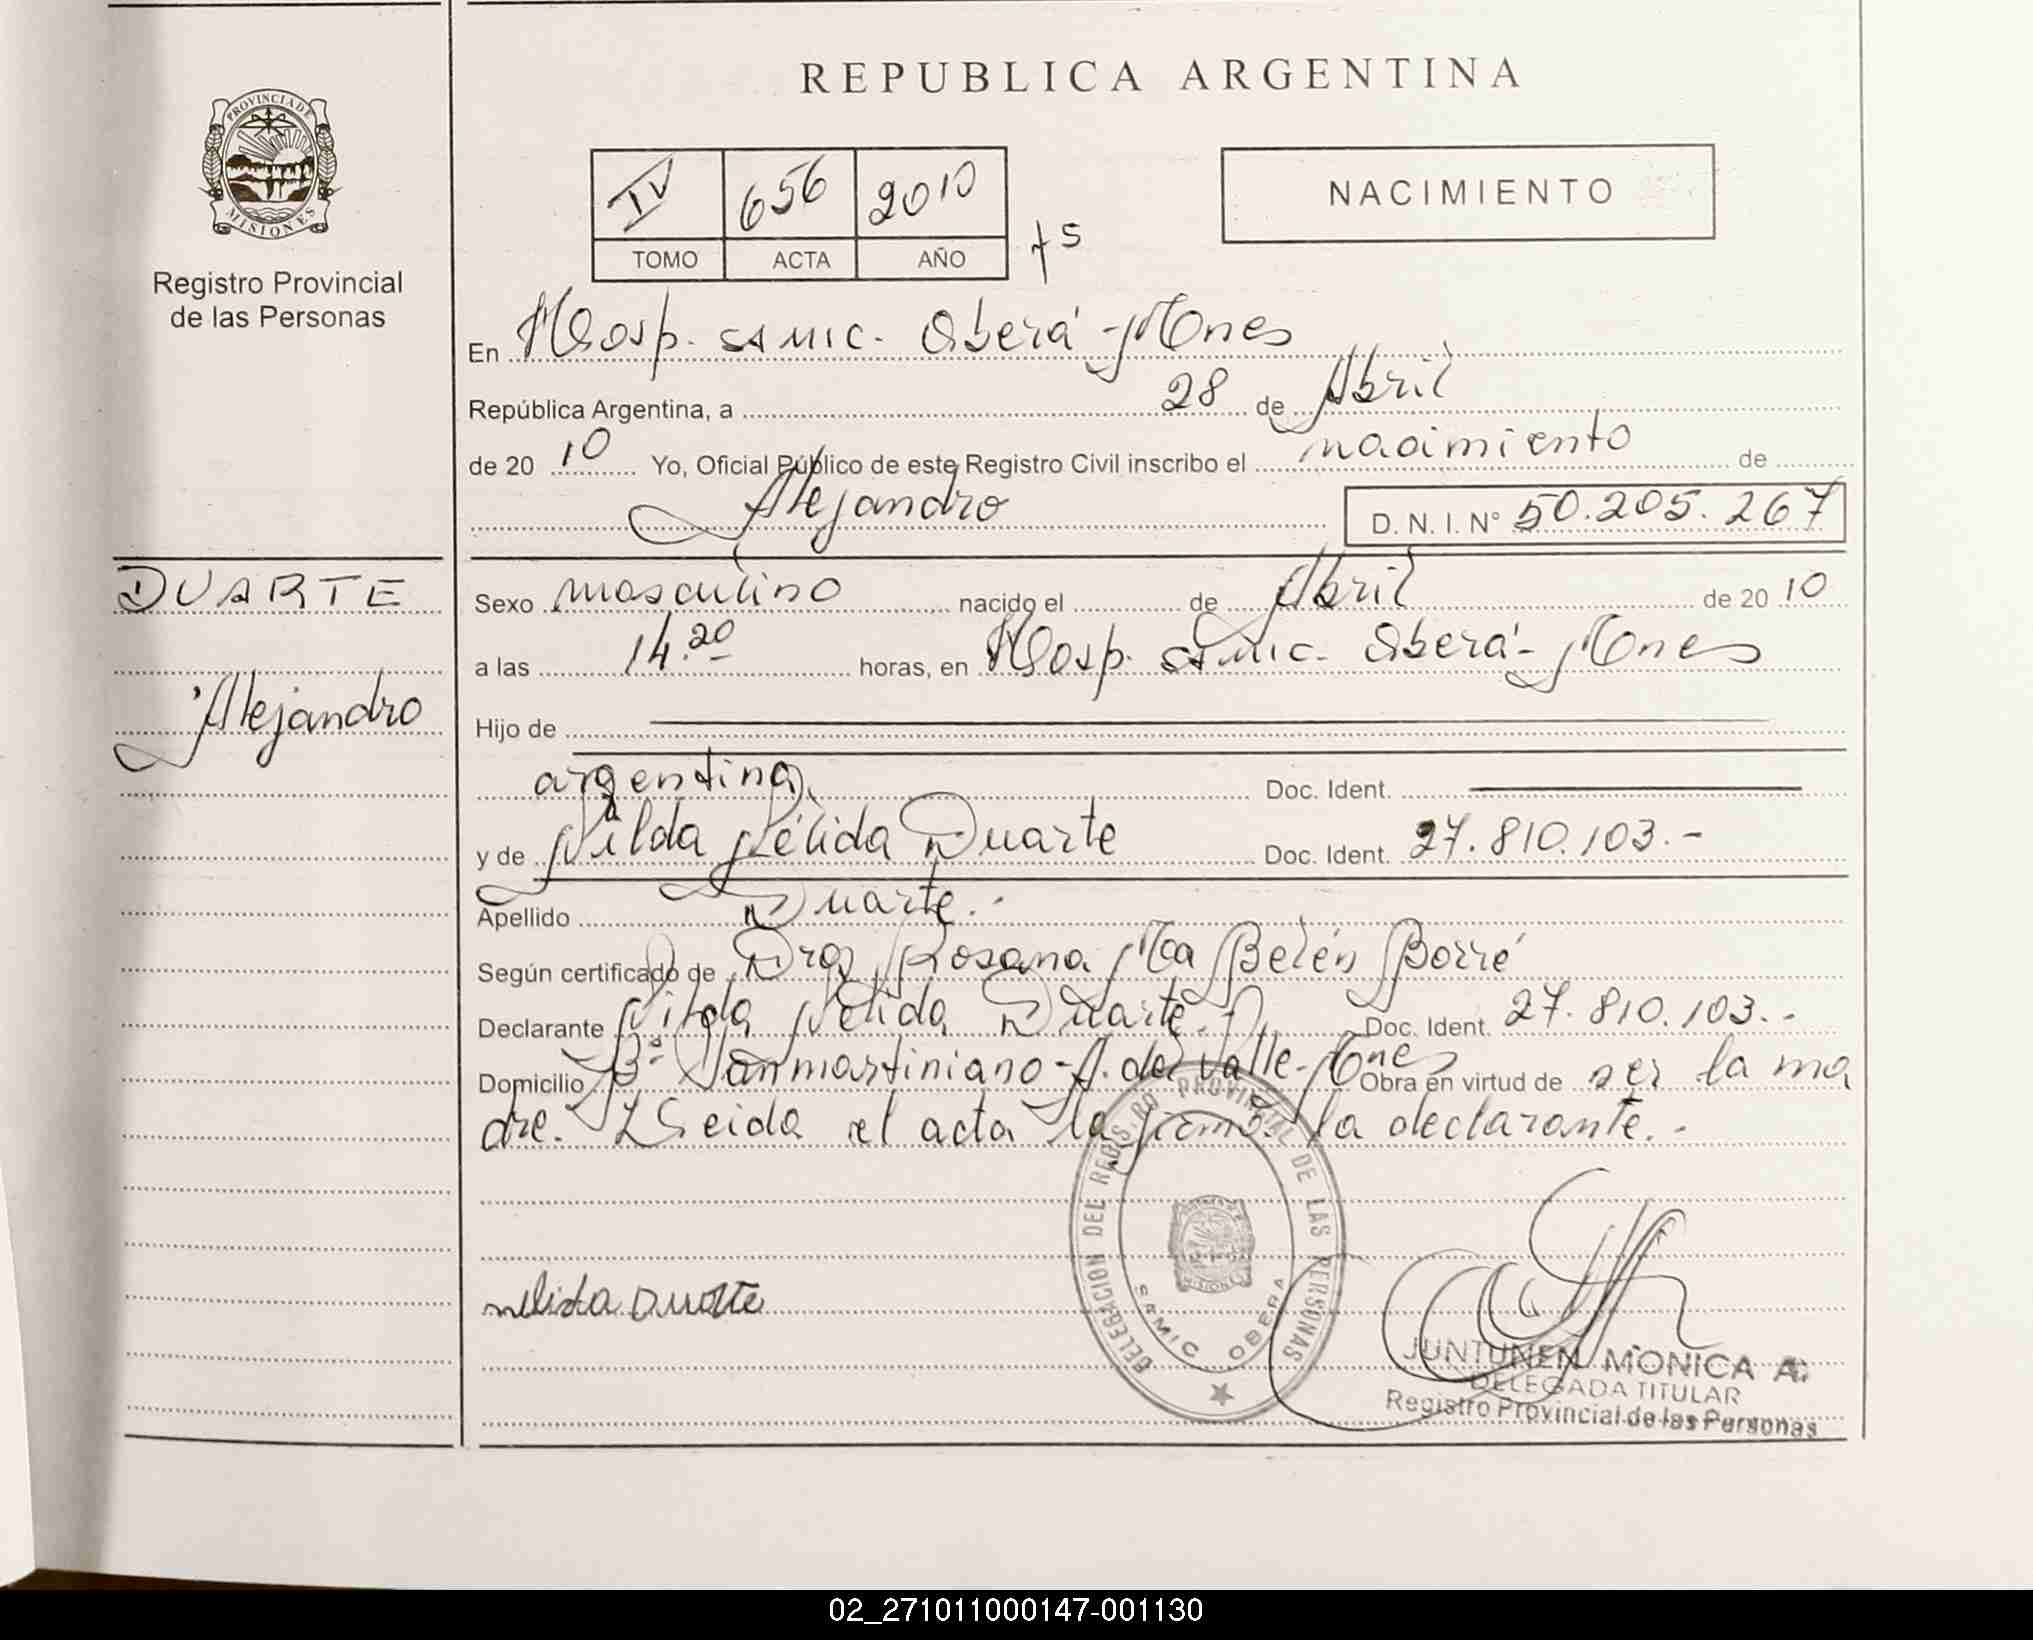 REPUBLICA ARGENTINA
PROVINCIA DE
MISIONES
Registro Provincial
de las Personas
IV 656 2010
TOMO ACTA AÑO
NACIMIENTO
En Hosp. SAMIC. Oberá - Mnes
República Argentina, a 28 de Abril
de 20 10 Yo, Oficial Público de este Registro Civil inscribo el nacimiento de
Alejandro D. N. I. N° 50.205.267
DUARTE
Alejandro
Sexo masculino nacido el de Abril de 20 10
a las 14.20 horas, en Hosp. SAMIC. Oberá - Mnes
Hijo de
argentina, Doc. Ident.
y de Nilda Nélida Duarte Doc. Ident. 27.810.103.-
Apellido Duarte.-
Según certificado de Dra, Rosana Ma Belén Borré
Declarante Nilda Nélida Duarte. Doc. Ident. 27.810.103.-
Domicilio B° Sanmartiniano - A. del Valle - Mnes Obra en virtud de ser la ma
dre. Leida el acta la firmó la declarante.-
DELEGACION DEL REGISTRO PROVINCIAL DE LAS PERSONAS
SAMIC OBERA
MISIONES
nelida Duarte
JUNTUNEN MONICA A.
DELEGADA TITULAR
Registro Provincial de las Personas
02_271011000147-001130